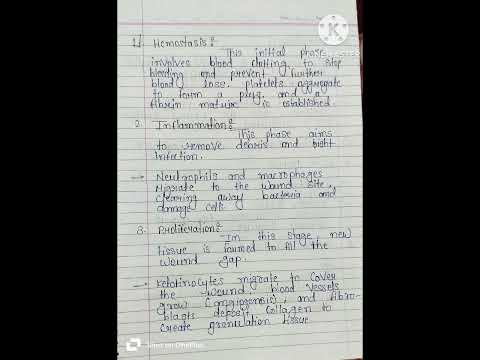 1) Hemostasis :
This initial phase
involves blood clotting to stop
bleeding and prevent further
blood loss. platelets aggregate
to form a plug, and a
fibrin matrix is established
2. Inflammation :
This phase aims
to remove debris and
infection.
→ Neutrophils and macrophages
migrate to the wound site,
clearing away bacteria and
damage cells
3. Proliferation :
In this stage, new
tissue is formed to fill the
wound gap.
→ Keratinocytes migrate to cover
the wound, blood vessels
grow (angiogenesis), and fibro-
blasts deposit collagen to
create granulation tissue
Shot on OnePlus